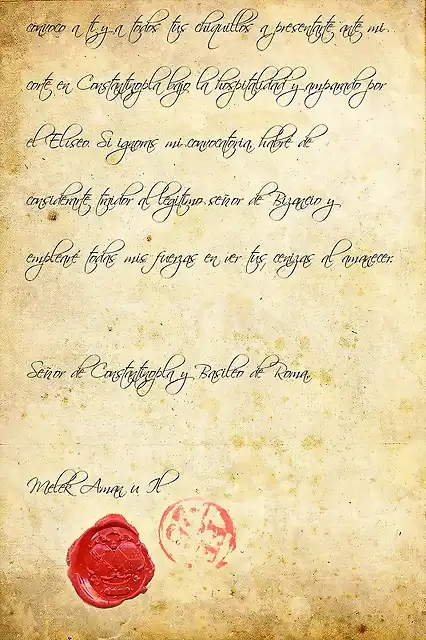 convoco a ti y a todos tus chiquillos a presentarte ante mi
corte en Constantinopla bajo la hospitalidad y amparado por
el Elíseo. Si ignoras mi convocatoria, habré de
considerarte traidor al legítimo señor de Bizancio y
emplearé todas mis fuerzas en ver tus cenizas al amanecer.
Señor de Constantinopla y Basileo de Roma,
Melek Aman u Il